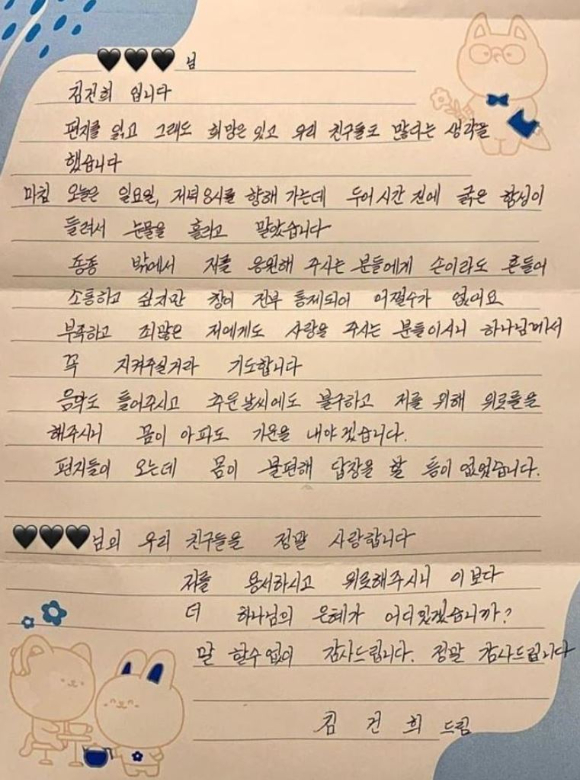 🖤🖤🖤 님
김건희 입니다
편지를 읽고 그래도 희망은 있고 우리 친구들도 많다는 생각을
했습니다
마침 오늘은 일요일, 저녁 8시를 향해 가는데 두어시간 전에 굵은 함성이
들려서 눈물을 흘리고 말았습니다
종종 밖에서 저를 응원해 주시는 분들에게 손이라도 흔들어
소통하고 싶지만 창이 전부 통제되어 어쩔수가 없어요
부족하고 죄많은 저에게도 사랑을 주시는 분들이시니 하나님께서
꼭 지켜주실거라 기도합니다
음악도 틀어주시고 추운날씨에도 불구하고 저를 위해 위로를
해주시니 몸이 아파도 기운을 내야겠습니다.
편지들이 오는데 몸이 불편해 답장을 할 틈이 없었습니다.
🖤🖤🖤님의 우리 친구들을 정말 사랑합니다
저를 용서하시고 위로해주시니 이보다
더 하나님의 은혜가 어디있겠습니까?
말 할수없이 감사드립니다. 정말 감사드립니다
김 건 희 드림